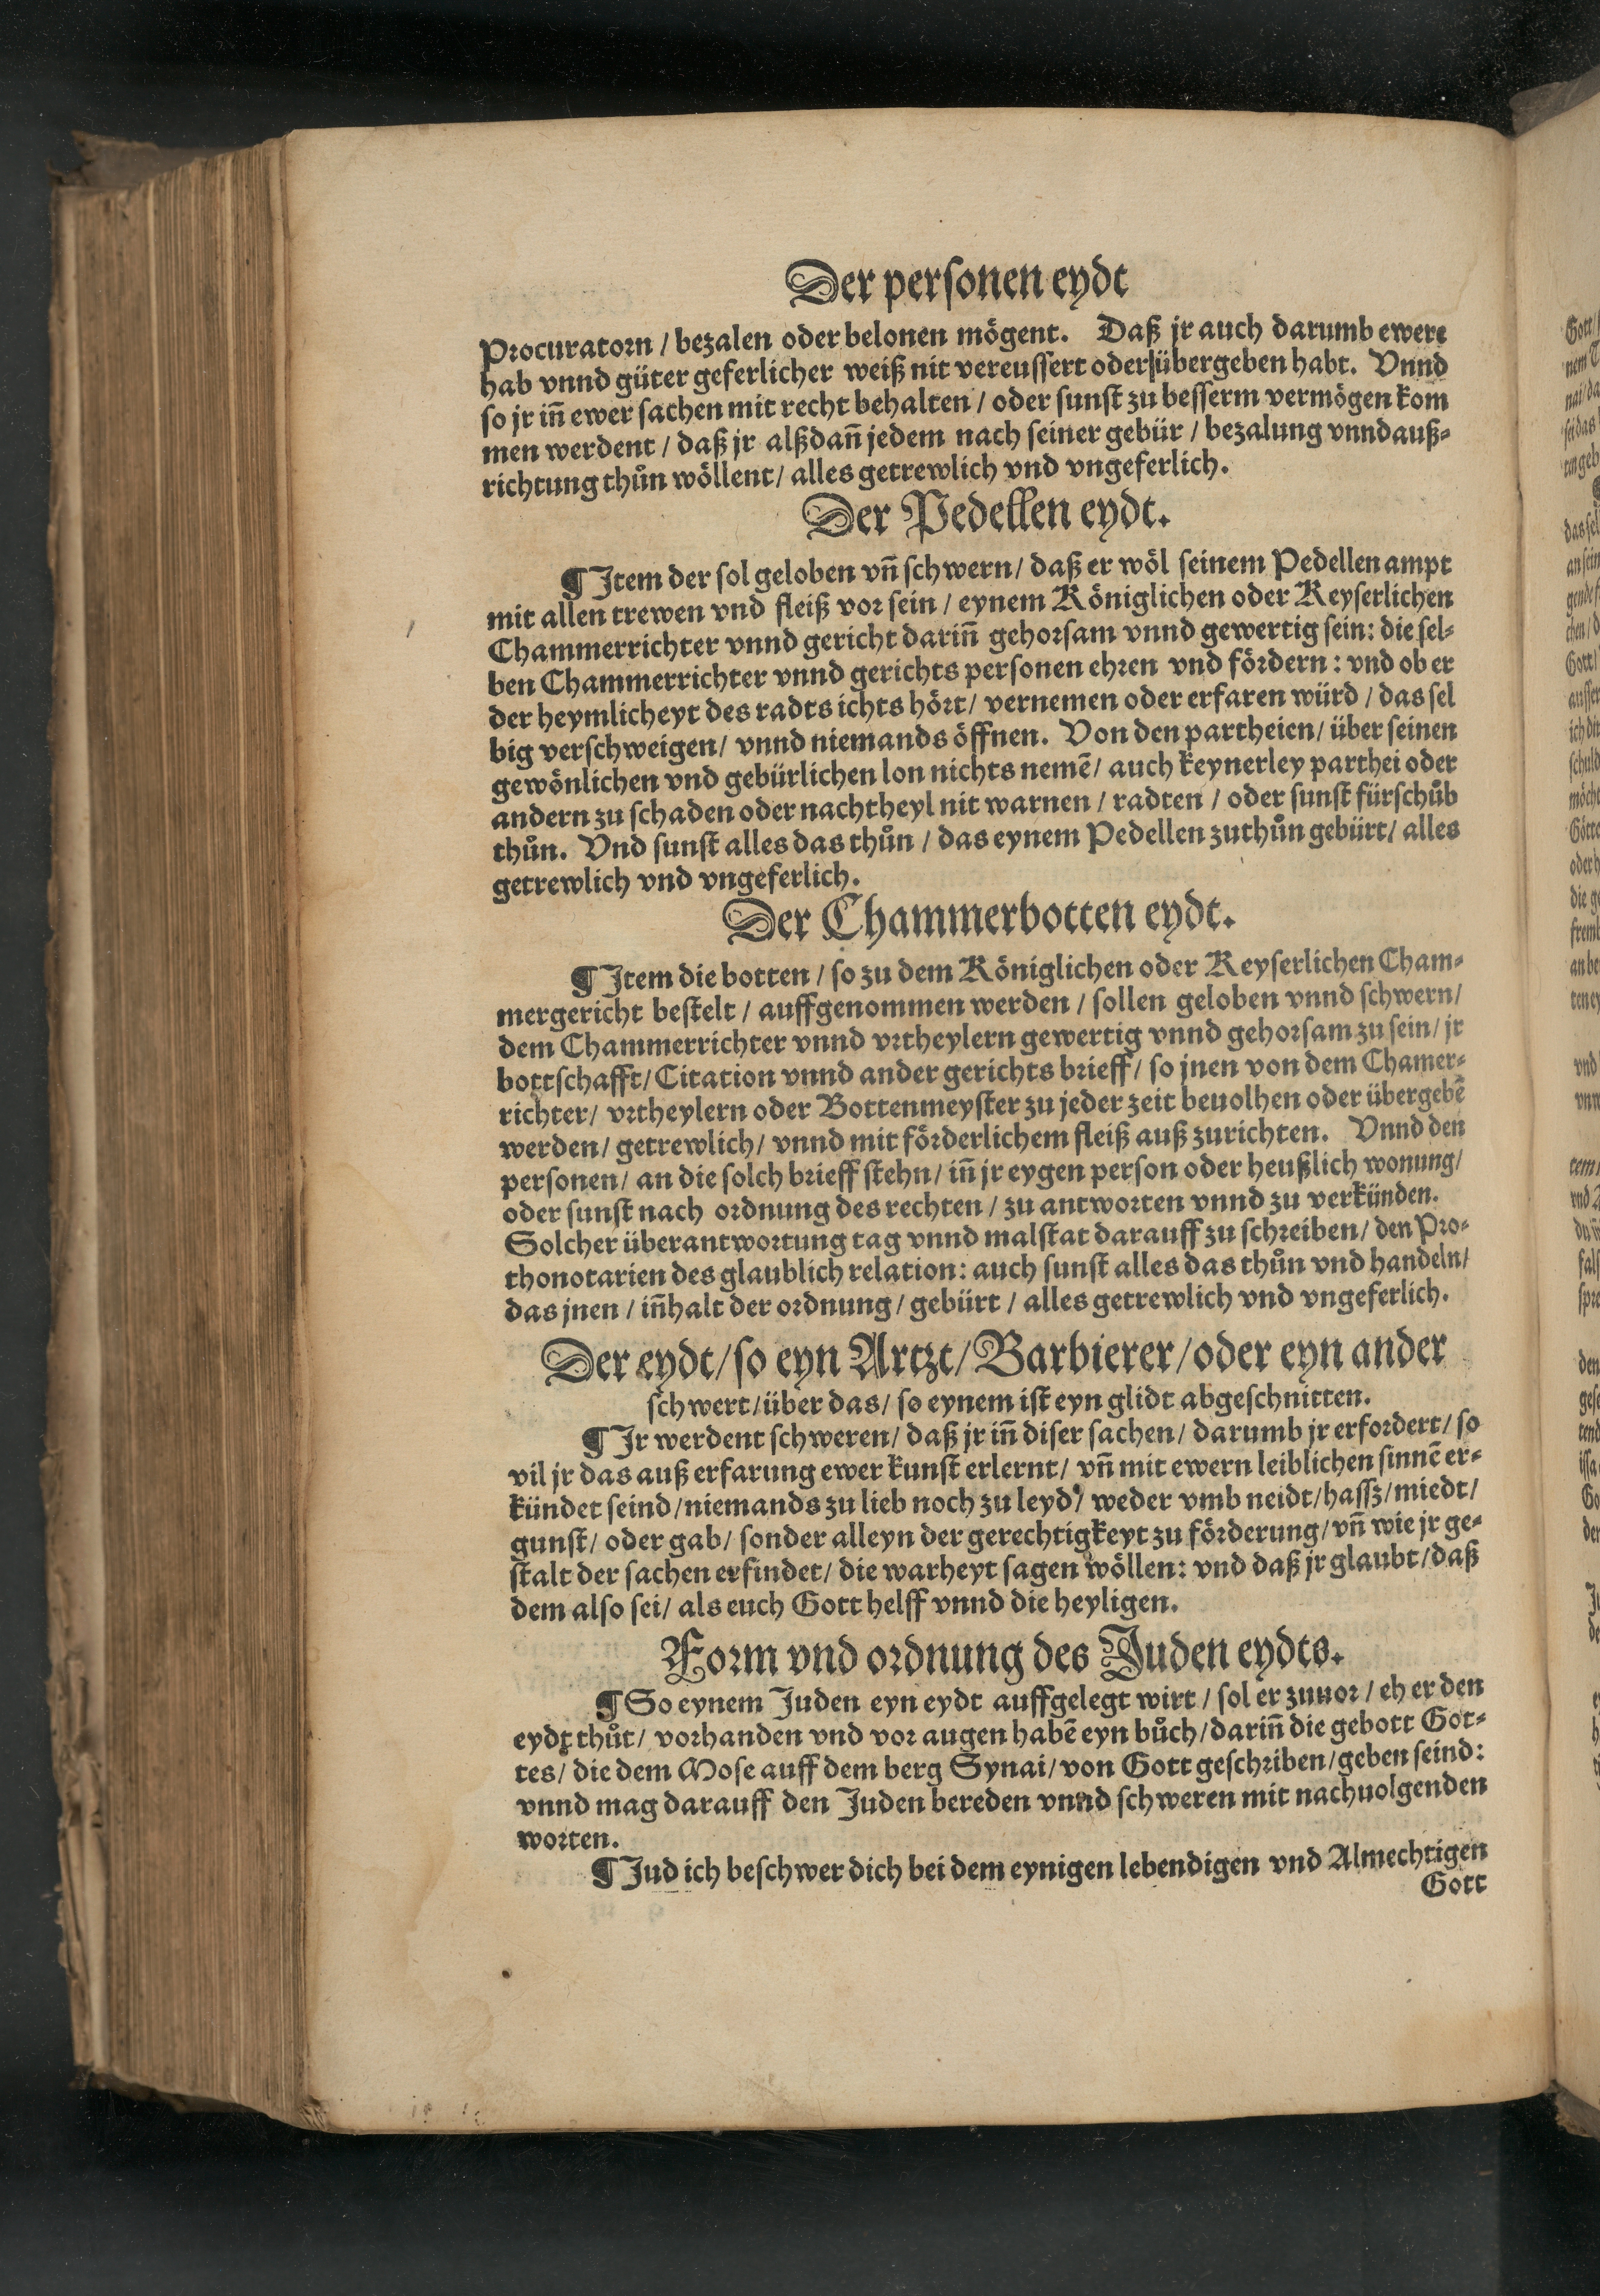 Der personen eydt
Procuratorn / bezalen oder belonen mögent. Daß jr auch darumb ewere
hab vnnd güter geferlicher weiß nit vereussert oder übergeben habt. Vnnd
so jr iñ ewer sachen mit recht behalten / oder sunst zu besserm vermögen kom
men werdent / daß jr alßdañ jedem nach seiner gebür / bezalung vnnd auß⸗
richtung thůn wöllent / alles getrewlich vnd vngeferlich.
Der Pedellen eydt.
¶ Item der sol geloben vñ schwern / daß er wöl seinem Pedellen ampt
mit allen trewen vnd fleiß vor sein / eynem Königlichen oder Keyserlichen
Chammerrichter vnnd gericht dariñ gehorsam vnnd gewertig sein: die sel⸗
ben Chammerrichter vnnd gerichts personen ehren vnd fördern: vnd ob er
der heymlicheyt des radts ichts hört / vernemen oder erfaren würd / das sel
big verschweigen / vnnd niemands öffnen. Von den partheien / über seinen
gewönlichen vnd gebürlichen lon nichts nemẽ / auch keynerley parthei oder
andern zu schaden oder nachtheyl nit warnen / radten / oder sunst fürschůb
thůn. Vnd sunst alles das thůn / das eynem Pedellen zuthůn gebürt / alles
getrewlich vnd vngeferlich.
Der Chammerbotten eydt.
¶ Item die botten / so zu dem Königlichen oder Keyserlichen Cham⸗
mergericht bestelt / auffgenommen werden / sollen geloben vnnd schwern /
dem Chammerrichter vnnd vrtheylern gewertig vnnd gehorsam zu sein / jr
bottschafft / Citation vnnd ander gerichts brieff / so jnen von dem Chamer⸗
richter / vrtheylern oder Bottenmeyster zu jeder zeit beuolhen oder übergebẽ
werden / getrewlich / vnnd mit förderlichem fleiß auß zurichten. Vnnd den
personen / an die solch brieff stehn / iñ jr eygen person oder heußlich wonung /
oder sunst nach ordnung des rechten / zu antworten vnnd zu verkünden.
Solcher überantwortung tag vnnd malstat darauff zu schreiben / den Pro⸗
thonotarien des glaublich relation: auch sunst alles das thůn vnd handeln /
das jnen / iñhalt der ordnung / gebürt / alles getrewlich vnd vngeferlich.
Der eydt / so eyn Artzt / Barbierer / oder eyn ander
schwert / über das / so eynem ist eyn glidt abgeschnitten.
¶ Ir werdent schweren / daß jr iñ diser sachen / darumb jr erfordert / so
vil jr das auß erfarung ewer kunst erlernt / vñ mit ewern leiblichen sinnẽ er⸗
kündet seind / niemands zu lieb noch zu leyd / weder vmb neidt / hassz / miedt /
gunst / oder gab / sonder alleyn der gerechtigkeyt zu förderung / vñ wie jr ge⸗
stalt der sachen erfindet / die warheyt sagen wöllen: vnd daß jr glaubt / daß
dem also sei / als euch Gott helff vnnd die heyligen.
Form vnd ordnung des Juden eydts.
¶ So eynem Juden eyn eydt auffgelegt wirt / sol er zuuor / eh er den
eydt thůt / vorhanden vnd vor augen habẽ eyn bůch / dariñ die gebott Got⸗
tes / die dem Mose auff dem berg Synai / von Gott geschriben / geben seind:
vnnd mag darauff den Juden bereden vnnd schweren mit nachuolgenden
worten.
¶ Jud ich beschwer dich bei dem eynigen lebendigen vnd Almechtigen
Gott